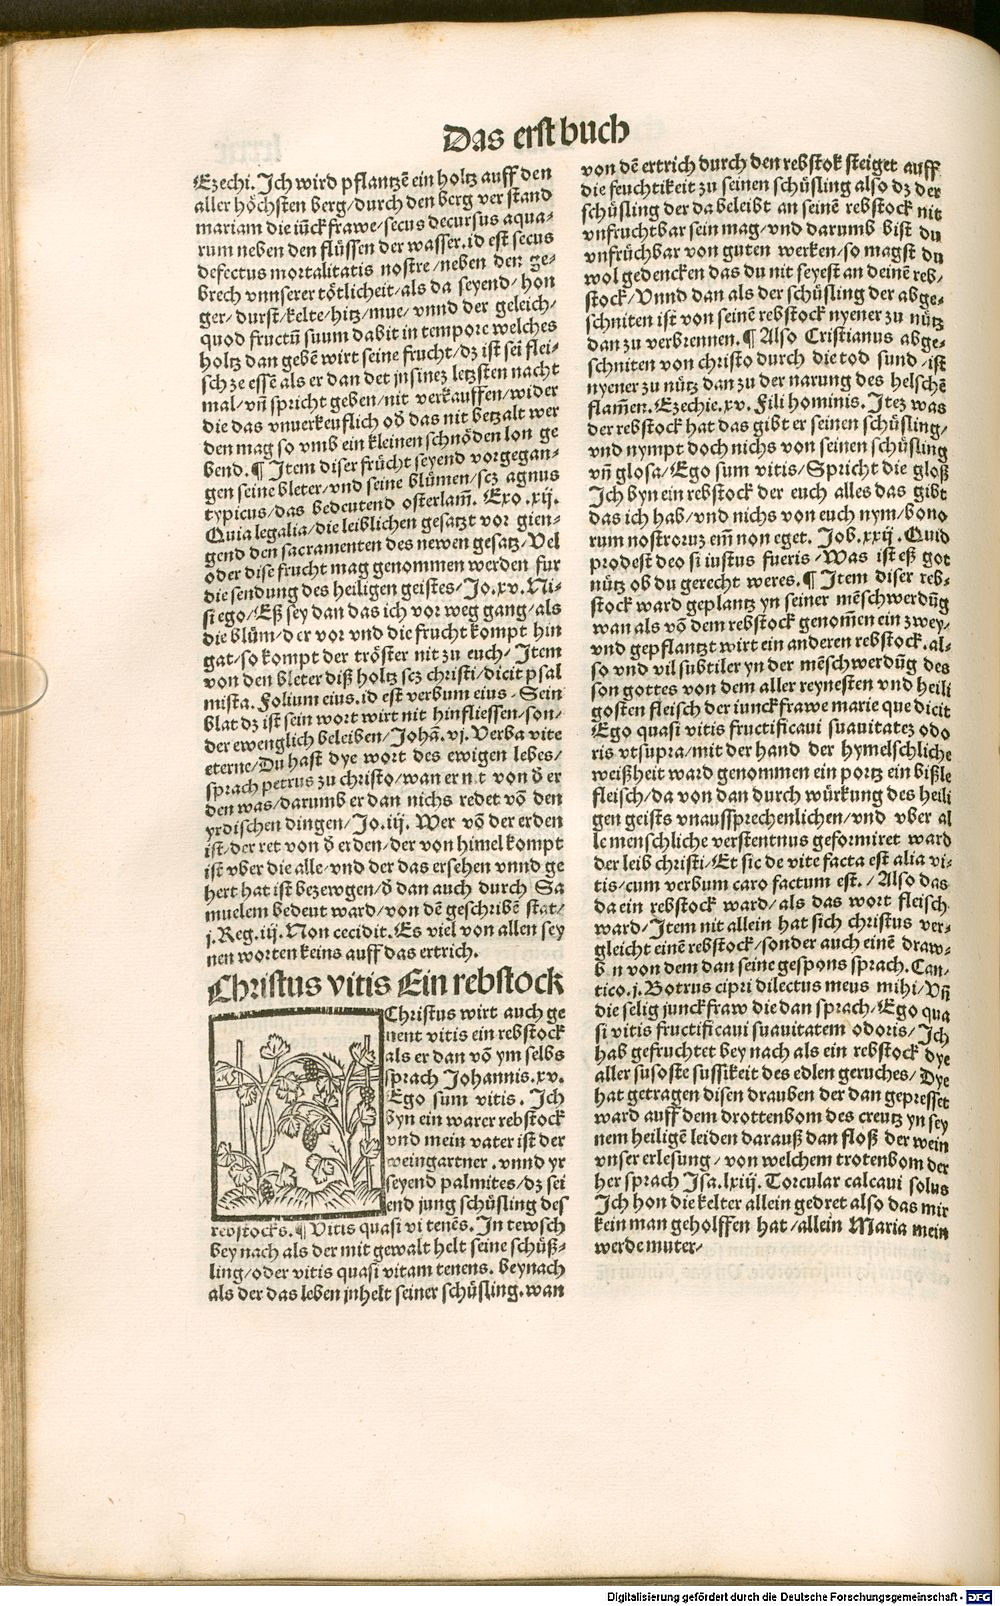 Das erst buch
Ezechi. Ich wird pflantzē ein holtz auff den
aller höchsten berg/durch den berg ver stand
mariam die iūckfrawe/secus decursus aqua⸗
rum neben den flüssen der wasser.id est secus
defectus mortalitatis nostre/neben den ge⸗
brech vnnserer tötlicheit/als da seyend/hon
ger/durst/kelte/hitz/mue/vnnd der geleich/
quod fructū suum dabit in tempore welches
holtz dan gebē wirt seine frucht/dz ist sei flei⸗
sch ze essē als er dan det jnsinez letzsten nacht
mal/vn̄ spricht geben/nit verkauffen/wider
die das vnuerkeuflich od̄ das nit betzalt wer
den mag so vmb ein kleinen schnöden lon ge
bend.¶ Item diser frücht seyend vorgegan⸗
gen seine bleter/vnd seine blůmen/scz agnus
typicus/das bedeutend osterlam̄. Exo.xij.
Quia legalia/die leiblichen gesatzt vor gien⸗
gend den sacramenten des newen gesatz/Vel
oder dise frucht mag genommen werden fur
die sendung des heiligen geistes/Jo.xv.Ni⸗
si ego/Eß sey dan das ich vor weg gang/als
die blům/d er vor vnd die frucht kompt hin
gat/so kompt der tröster nit zu euch/ Item
von den bleter diß holtz scz christi/dicit psal
mista. Folium eius.id est verbum eius. Sein
blat dz ist sein wort wirt nit hinfliessen/son⸗
der ewenglich beleiben/Johā.vj. Verba vite
eterne/Du hast dye wort des ewigen lebes/
sprach petrus zu christo/wan er n t von d̄ er
den was/darumb er dan nichs redet vō den
yrdischen dingen/Jo.iij. Wer vō der erden
ist/der ret von d̄ erden/der von himel kompt
ist vber die alle/vnd der das ersehen vnnd ge
hert hat ist bezewgen/d̄ dan auch durch Sa
muelem bedeut ward/von dē geschribē stat/
j.Reg.iij.Non cecidit.Es viel von allen sey
nen worten keins auff das ertrich.
Christus vitis Ein rebstock
Christus wirt auch ge
nent vitis ein rebstock
als er dan vō ym selbs
sprach Johannis.xv.
Ego sum vitis. Ich
byn ein warer rebstock
vnd mein vater ist der
weingartner.vnnd yr
seyend palmites/dz sei
end jung schüsling des
rebstocks.¶ Vitis quasi vi tenēs. In tewsch
bey nach als der mit gewalt helt seine schüß⸗
ling/oder vitis quasi vitam tenens. beynach
als der das leben jnhelt seiner schüsling.wan
von dē ertrich durch den rebstok steiget auff
die feuchtikeit zu seinen schüsling also dz der
schüsling der da beleibt an seinē rebstock nit
vnfruchtbar sein mag/vnd darumb bist du
vnfrüchbar von guten werken/so magst du
wol gedencken das du nit seyest an deinē reb⸗
stock/Vnnd dan als der schüsling der abge⸗
schniten ist von seinē rebstock nyener zu nütz
dan zu verbrennen.¶ Also Cristianus abge⸗
schniten von christo durch die tod sund/ist
nyener zu nütz dan zu der narung des helschē
flam̄en.Ezechie.xv. Fili hominis. Itez was
der rebstock hat das gibt er seinen schüsling/
vnd nympt doch nichs von seinen schüsling
vn̄ glosa/Ego sum vitis/Spricht die gloß
Ich byn ein rebstock der euch alles das gibt
das ich hab/vnd nichs von euch nym/bono
rum nostroruz em̄ non eget. Job.xxij.Quid
prodest deo si iustus fueris/Was ist eß got
nütz ob du gerecht weres.¶ Item diser reb⸗
stock ward geplantz yn seiner mēschwerdūg
wan als vō dem rebstock genom̄en ein zwey/
vnd gepflantzt wirt ein anderen rebstock.al⸗
so vnd vil subtiler yn der mēschwerdūg des
son gottes von dem aller reynesten vnd heili
gosten fleisch der iunckfrawe marie que dicit
Ego quasi vitis fructificaui suauitatez odo
ris vtsupra/mit der hand der hymelschliche
weißheit ward genommen ein portz ein bißle
fleisch/da von dan durch würkung des heili
gen geists vnaussprechenlichen/vnd vber al
le menschliche verstentnus geformiret ward
der leib christi/Et sic de vite facta est alia vi⸗
tis/cum verbum caro factum est./Also das
da ein rebstock ward/als das wort fleisch
ward/Item nit allein hat sich christus ver⸗
gleicht einē rebstock/sonder auch einē draw⸗
b n von dem dan seine gespons sprach.Can⸗
tico.j.Botrus cipri dilectus meus mihi/Vn̄
die selig junckfraw die dan sprach/Ego qua
si vitis fructificaui suauitatem odoris/Ich
hab gefruchtet bey nach als ein rebstock dye
aller susoste sussikeit des edlen geruches/Dye
hat getragen disen drauben der dan gepresset
ward auff dem drottenbom des creutz yn sey
nem heiligē leiden darauß dan floß der wein
vnser erlesung/von welchem trotenbom der
her sprach Isa.lxiij. Torcular calcaui solus
Ich hon die kelter allein gedret also das mir
kein man geholffen hat/allein Maria mein
werde muter/
Digitalisierung gefördert durch die Deutsche Forschungsgemeinschaft - DFG